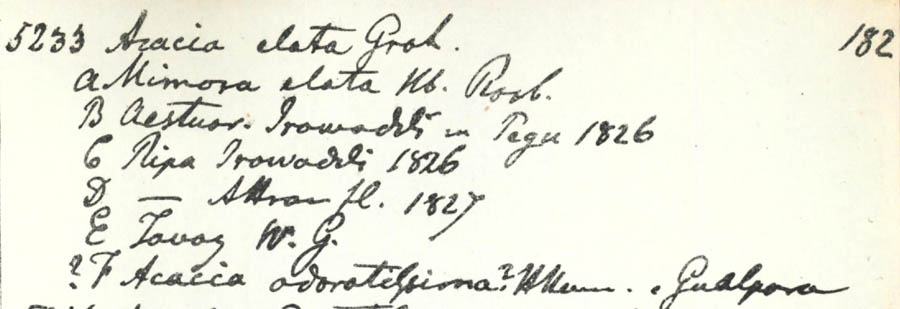 5233 Acacia elata Grah. 182
a Mimosa elata Hb. Roxb.
B Aestuar. Irawaddi in Pegu 1826
C Ripa Irawaddi 1826
D — Attran fl. 1827
E Tavoy W. G.
? F Acacia odoratissima? HHam. e Gualpara